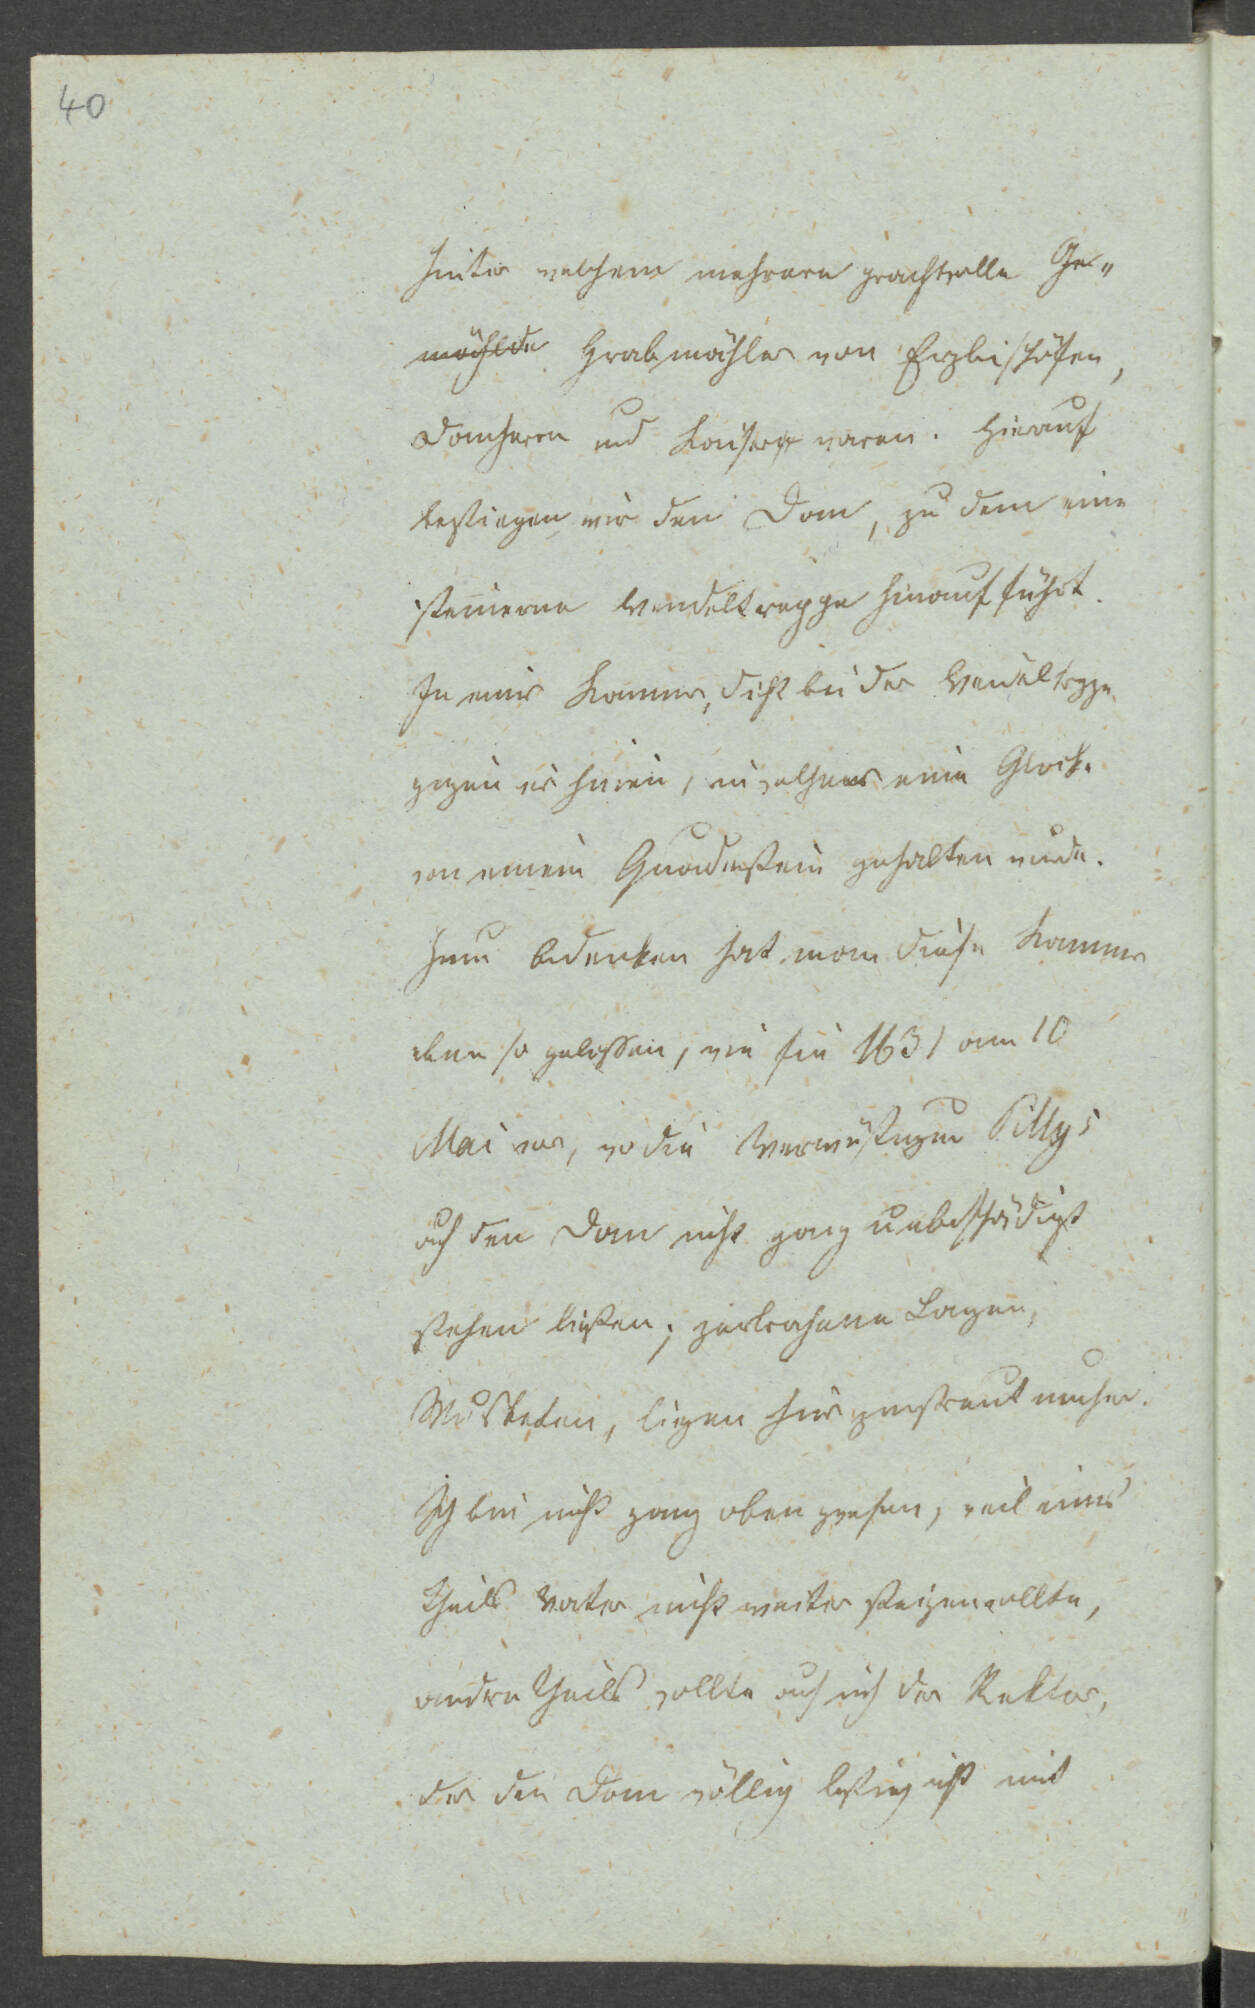 40
hinter welchem mehrere prachtvolle Ge„
mählde Grabmähler von Erzbischöfen,
Domherrn und Kaisern waren. Hierauf
bestiegen wir den Dom, zu dem eine
steinerne Wendeltreppe hinauf führt.
In einer Kammer, dicht bei der Wendeltreppe
gingen wir hinein, in welcher eine Glocke
von einem Quaderstein gehalten wurde.
Zum Andenken hat man diese Kammer
eben so gelassen, wie sie 1631 am 10
Mai war, wo die Verwüstungen Tillys
auch den Dom nicht ganz unbeschädigt
stehen ließen; zerbrochene Lanzen,
Musketen, liegen hier zerstreut umher.
Ich bin nicht ganz oben gewesen, weil eines
Theils Vater nicht weiter steigen wollte,
andern Theils wollte auch mich der Rektor,
der den Dom völlig bestieg nicht mit